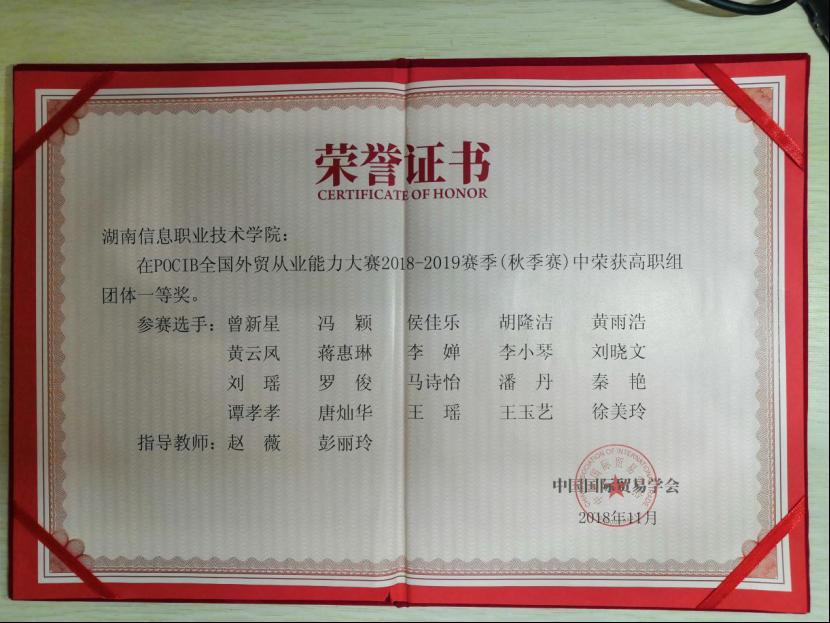 荣誉证书
CERTIFICATE OF HONOR
湖南信息职业技术学院：
在POCIB全国外贸从业能力大赛2018-2019赛季(秋季赛)中荣获高职组
团体一等奖。
参赛选手：曾新星 冯 颖 侯佳乐 胡隆洁 黄雨浩
黄云凤 蒋惠琳 李 婵 李小琴 刘晓文
刘 瑶 罗 俊 马诗怡 潘 丹 秦 艳
谭孝孝 唐灿华 王 瑶 王玉艺 徐美玲
指导教师：赵 薇 彭丽玲
中国国际贸易学会
2018年11月